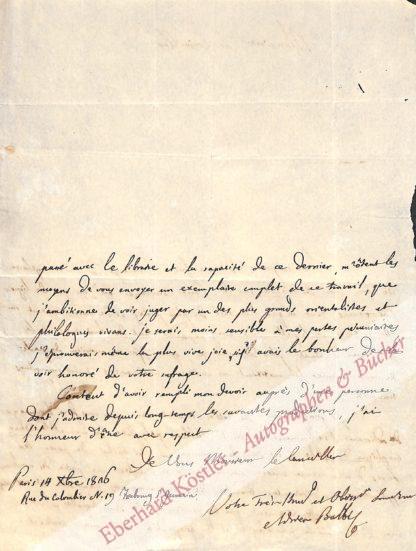 passé avec le libraire et la rapacité de ce dernier, m'ôtent les
moyens de vous envoyer un exemplaire complet de ce travail, que
j'ambitionne de voir juger par un des plus grands orientalistes et
philologues vivans. je serais moins sensible à mes pertes pécuniaires
j'éprouverais même la plus vive joie, si j'avais le bonheur de le
voir honoré du votre sufrage.
Content d'avoir rempli mon devoir auprès d'une personne
dont j'admire depuis long-temps les savantes productions, j'ai
l'honneur d'être avec respect
De Vous Monsieur le
Paris 14 Xbre 1826
Rue du Colombier N. 19 Faubourg S. Germain
Votre Très-Humb et Obéiss Serviteur
Adrien Balbi
Eberhard Köstler - Autographen & Bücher